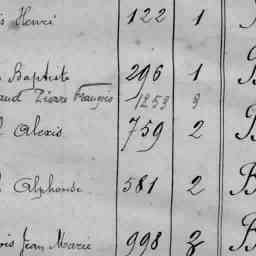 s Henri 122 1
Baptiste 296 1 B
aud Pierre François 1253 3
Alexis 759 2 B
Alphonse 581 2 B
ois Jean Marie 998 3 B